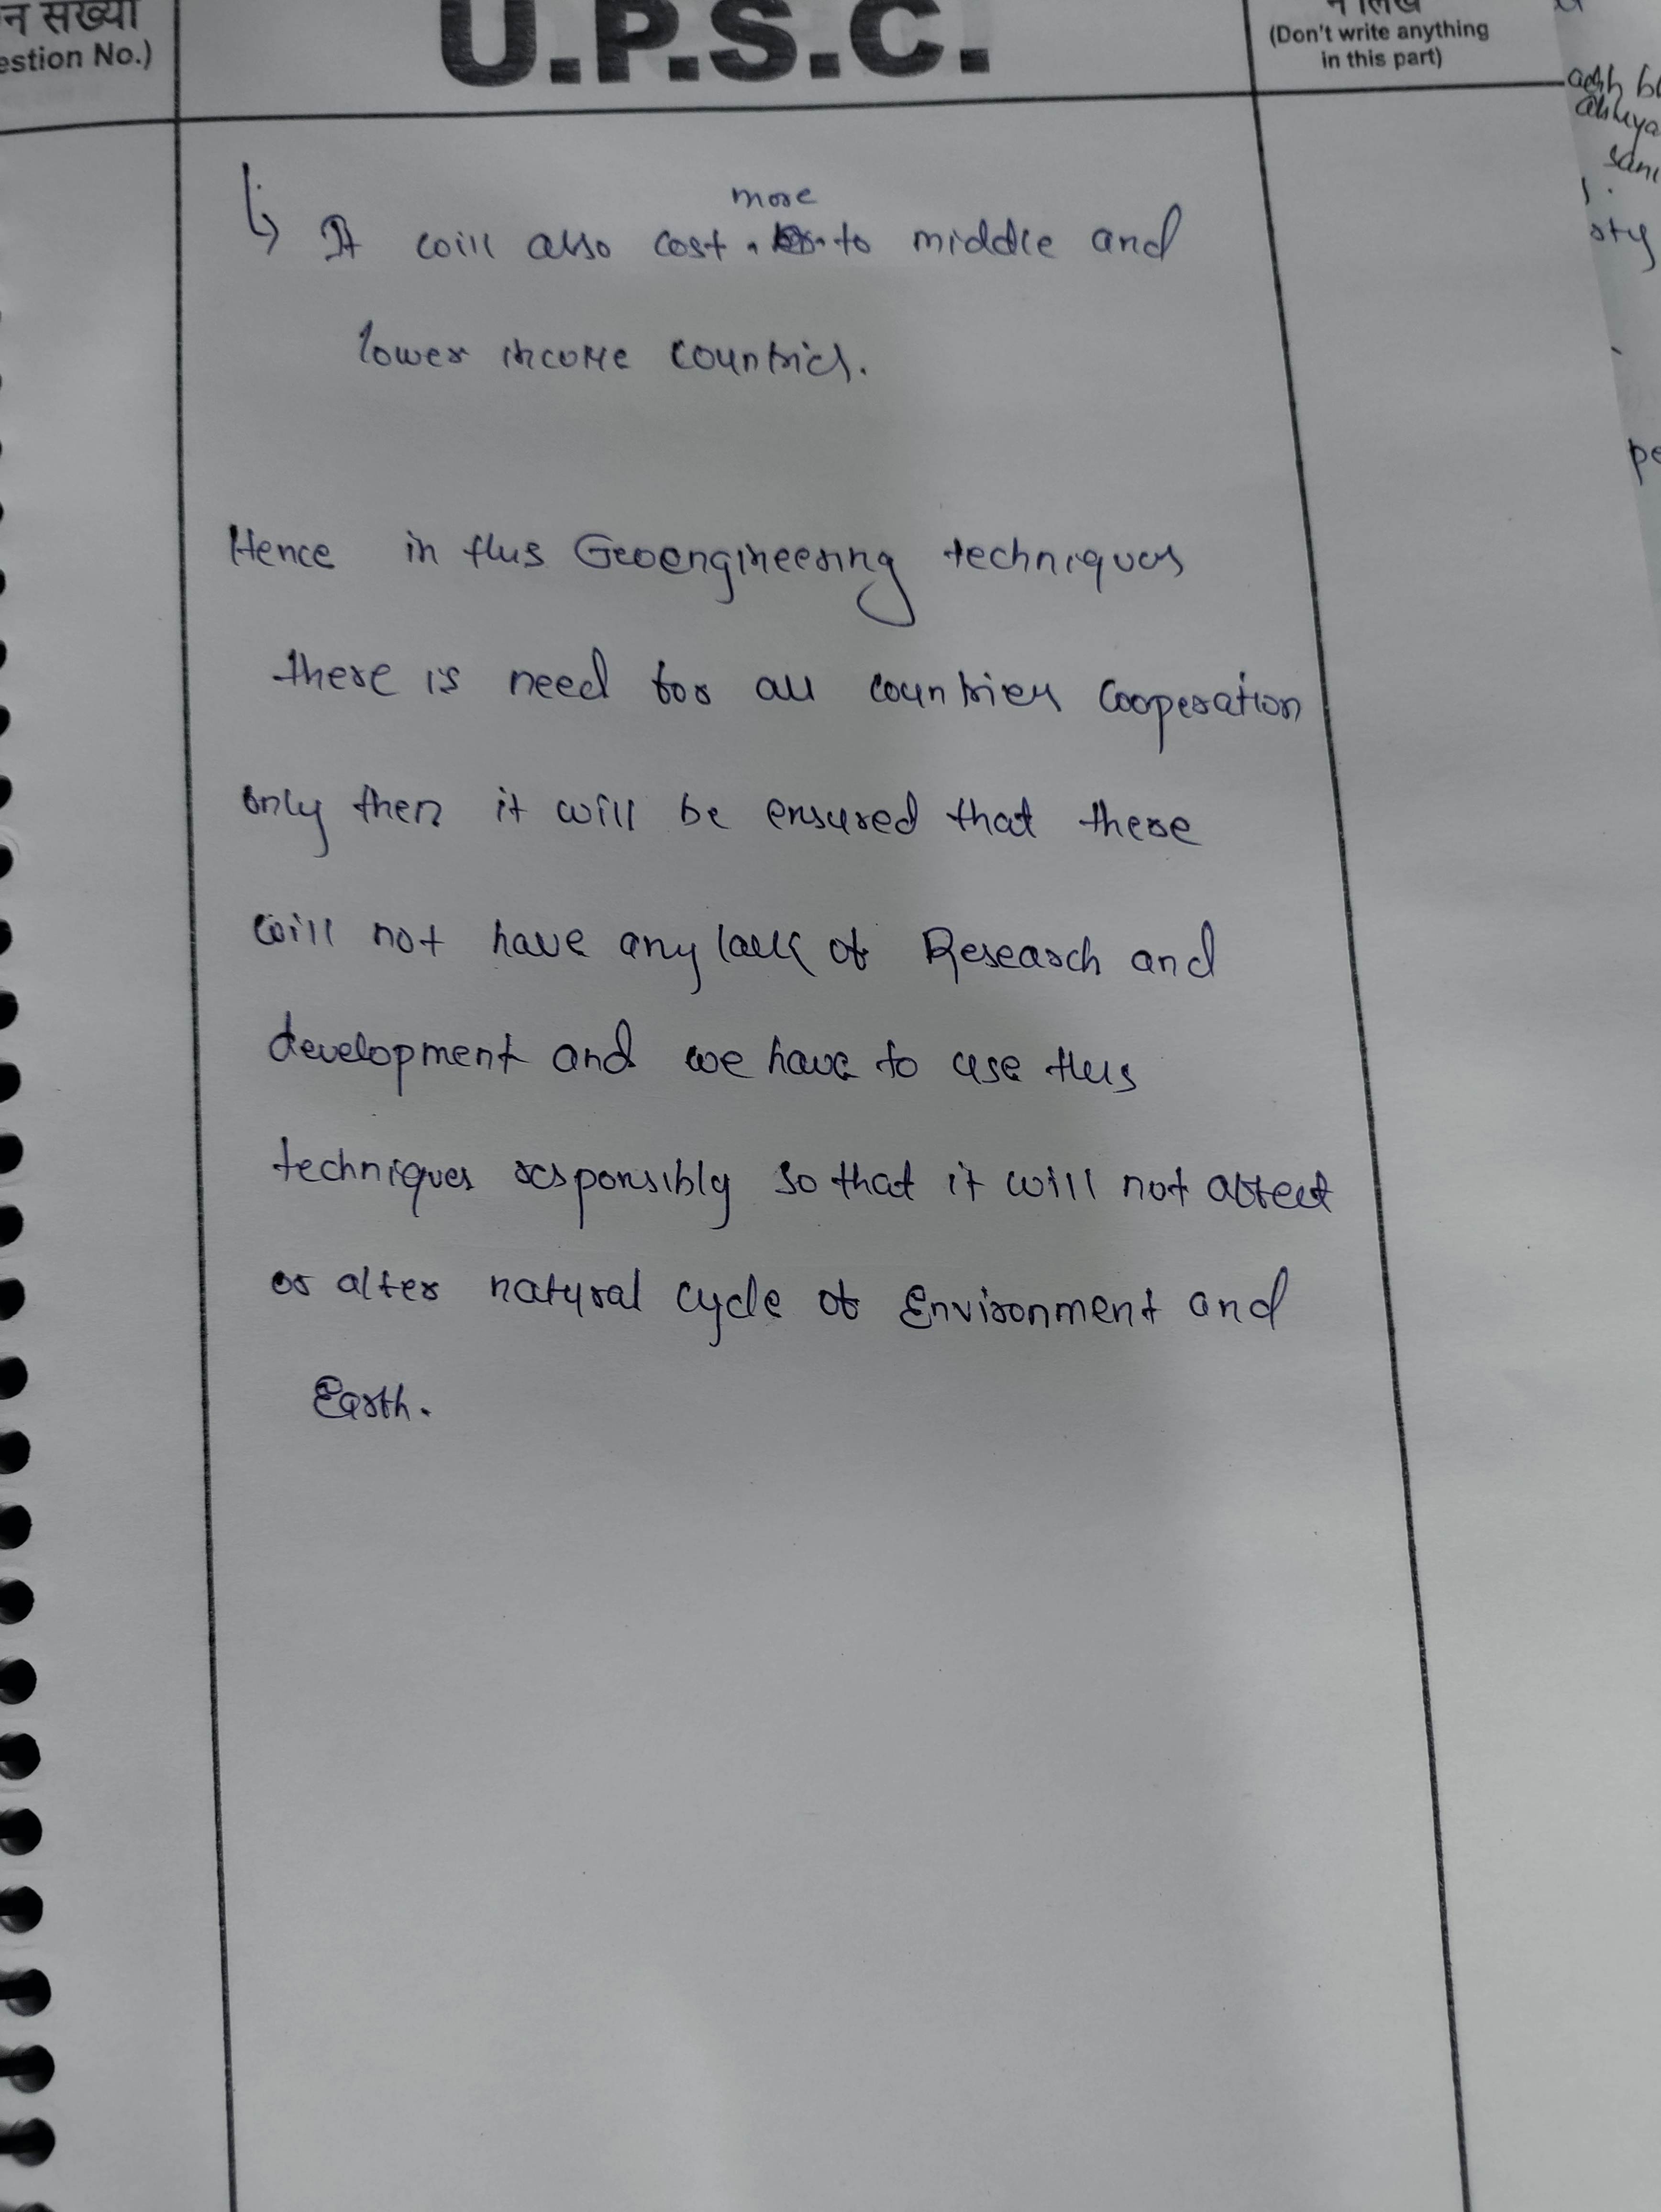 न संख्या
estion No.)
U.P.S.C.
(Don't write anything
in this part)
more
↳ It will also cost to middle and
lower income countries.
Hence in this Geoengineering techniques
there is need for all countries Cooperation
only then it will be ensured that there
will not have any lack of Research and
development and we have to use this
techniques responsibly so that it will not affect
or alter natural cycle of Environment and
Earth.